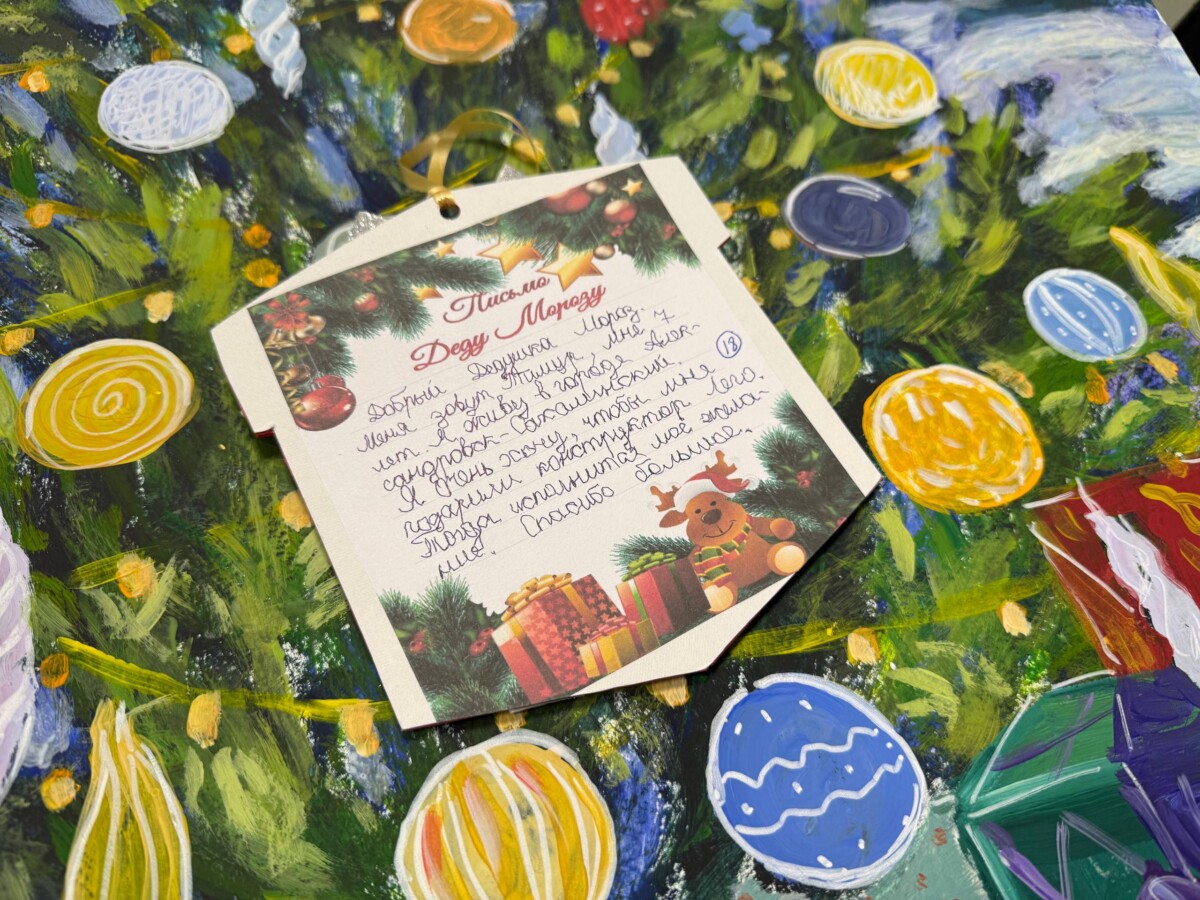 Письмо
Деду Морозу
Добрый Дедушка Мороз.
Меня зовут Тимур. Мне 7
лет. Я живу в городе Алек-
сандровск-Сахалинский.
Я очень хочу, чтобы мне
подарили конструктор Лего.
Тогда исполнится моё жела-
ние. Спасибо большое.
18